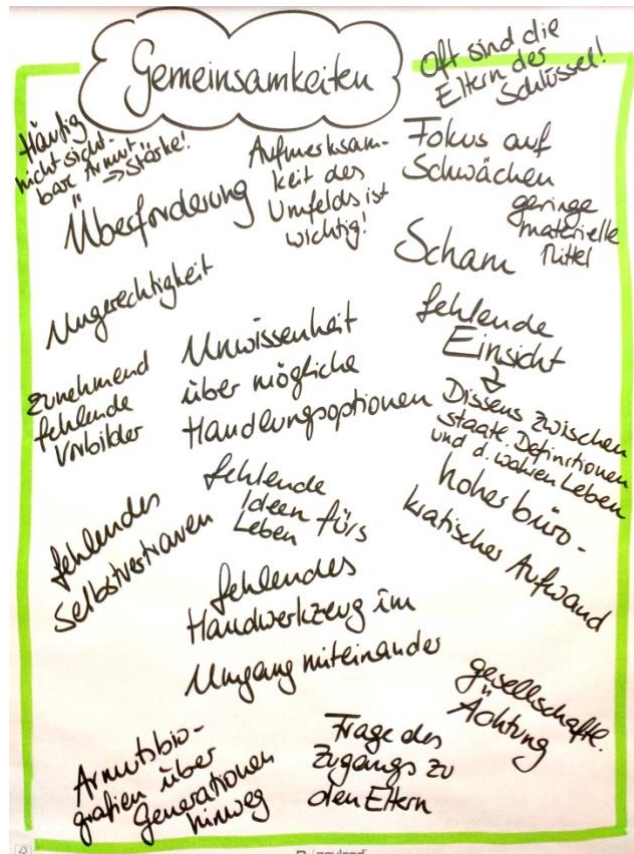 Gemeinsamkeiten
Oft sind die
Eltern der
Schlüssel!
Häufig
nicht sicht-
bare Armut
→ Stärke!
Überforderung
Aufmerksam-
keit des
Umfelds ist
wichtig!
Fokus auf
Schwächen
geringe
materielle
Mittel
Scham
Ungerechtigkeit
fehlende
Einsicht
Unwissenheit
über mögliche
Handlungsoptionen
zunehmend
fehlende
Vorbilder
Dissens zwischen
staatl. Definitionen
und d. wahren Leben
fehlende
Ideen fürs
Leben
hoher büro-
kratischer Aufwand
fehlendes
Selbstvertrauen
fehlendes
Handwerkzeug im
Umgang miteinander
gesellschaftl.
Ächtung
Armutsbio-
grafien über
Generationen
hinweg
Frage des
Zugangs zu
den Eltern